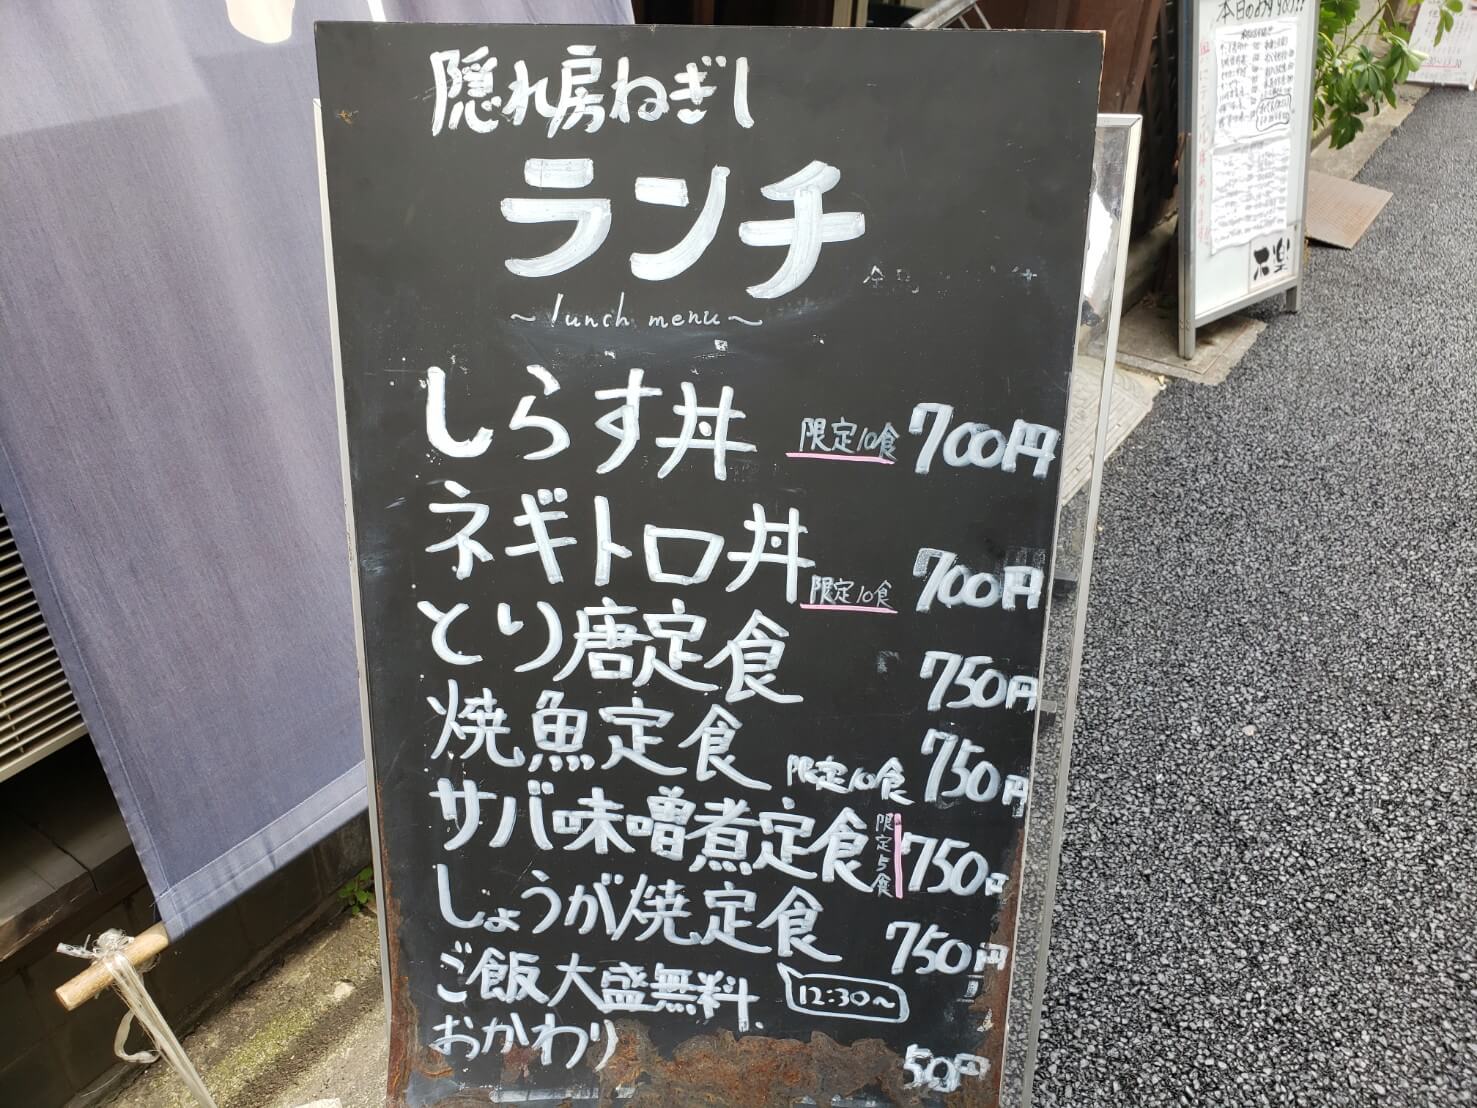 隠れ房ねぎし
ランチ
～lunch menu～
しらす丼 限定10食 700円
ネギトロ丼 限定10食 700円
とり唐定食 750円
焼魚定食 限定10食 750円
サバ味噌煮定食 限定5食 750円
しょうが焼定食 750円
ご飯大盛無料 12:30～
おかわり 50円
本日のおすすめ!!